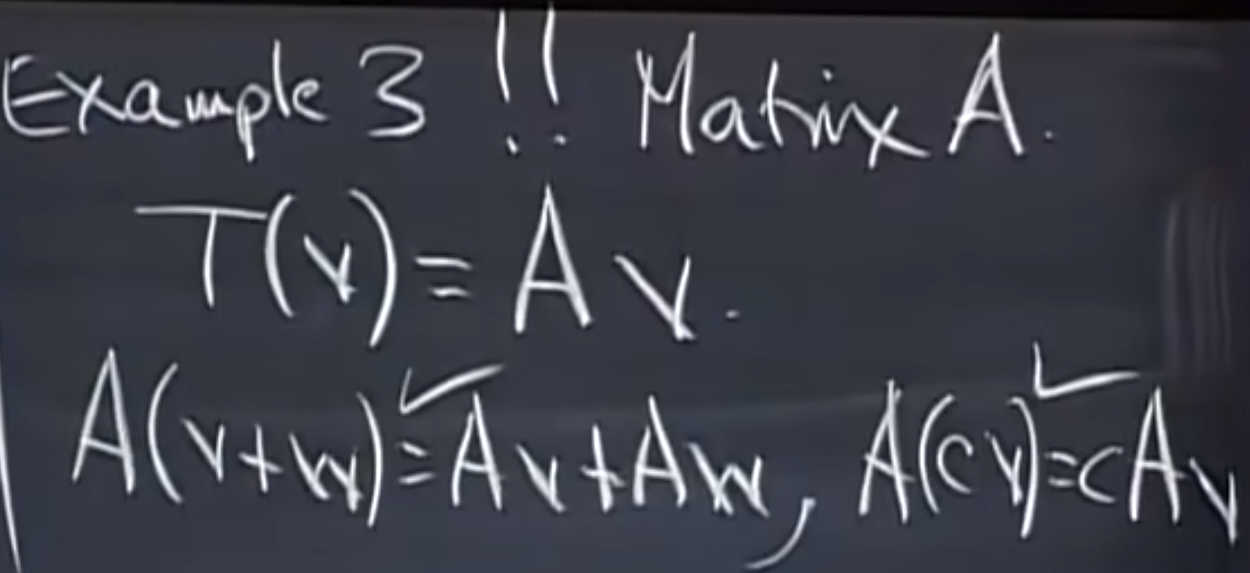 Example 3 !! Matrix A.
T(v) = Av.
A(v+w) =✓ Av+Aw, A(cv) =✓ cAv